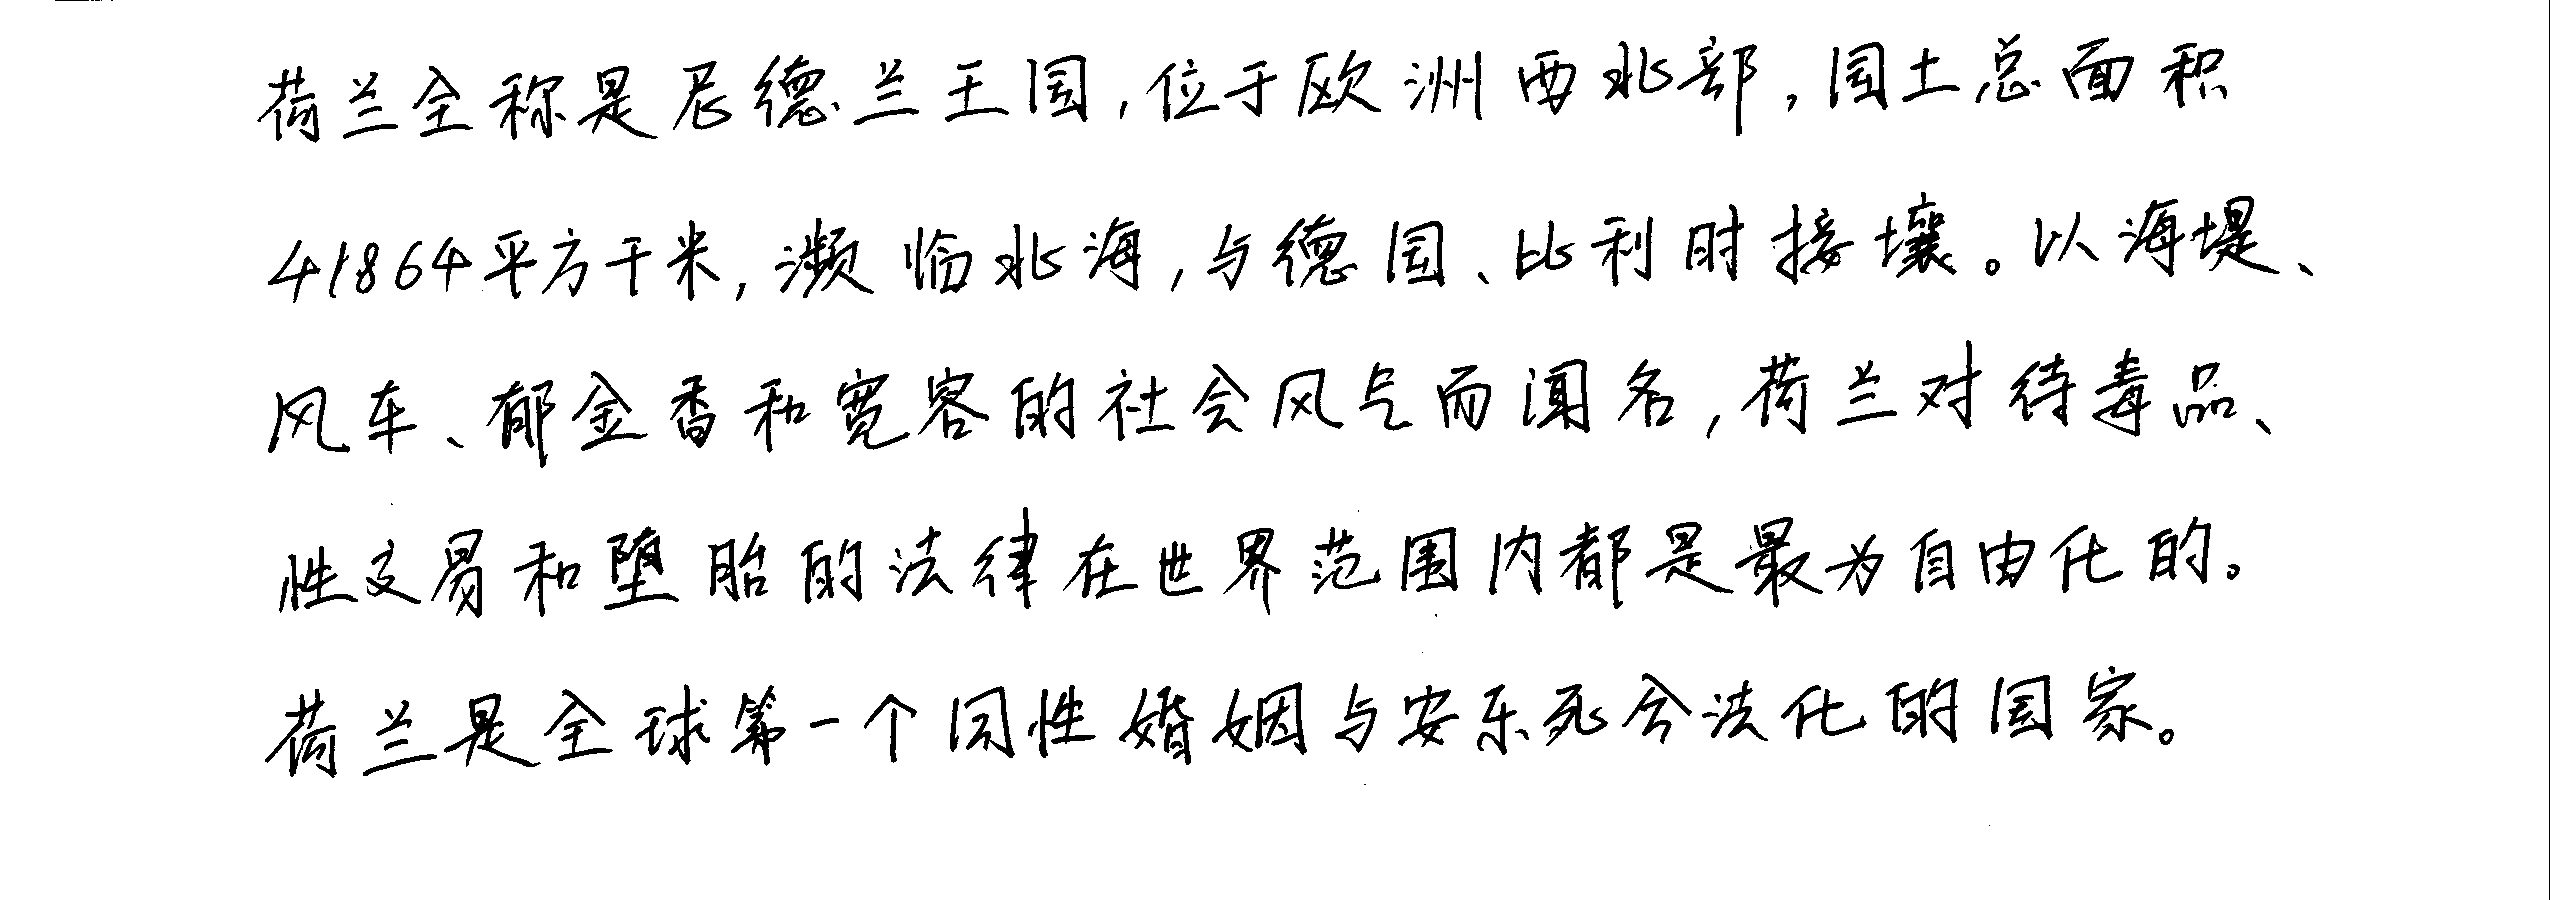 荷兰全称是尼德兰王国,位于欧洲西北部,国土总面积
41864平方千米,濒临北海,与德国、比利时接壤。以海堤、
风车、郁金香和宽容的社会风气而闻名,荷兰对待毒品、
性交易和堕胎的法律在世界范围内都是最为自由化的。
荷兰是全球第一个同性婚姻与安乐死合法化的国家。